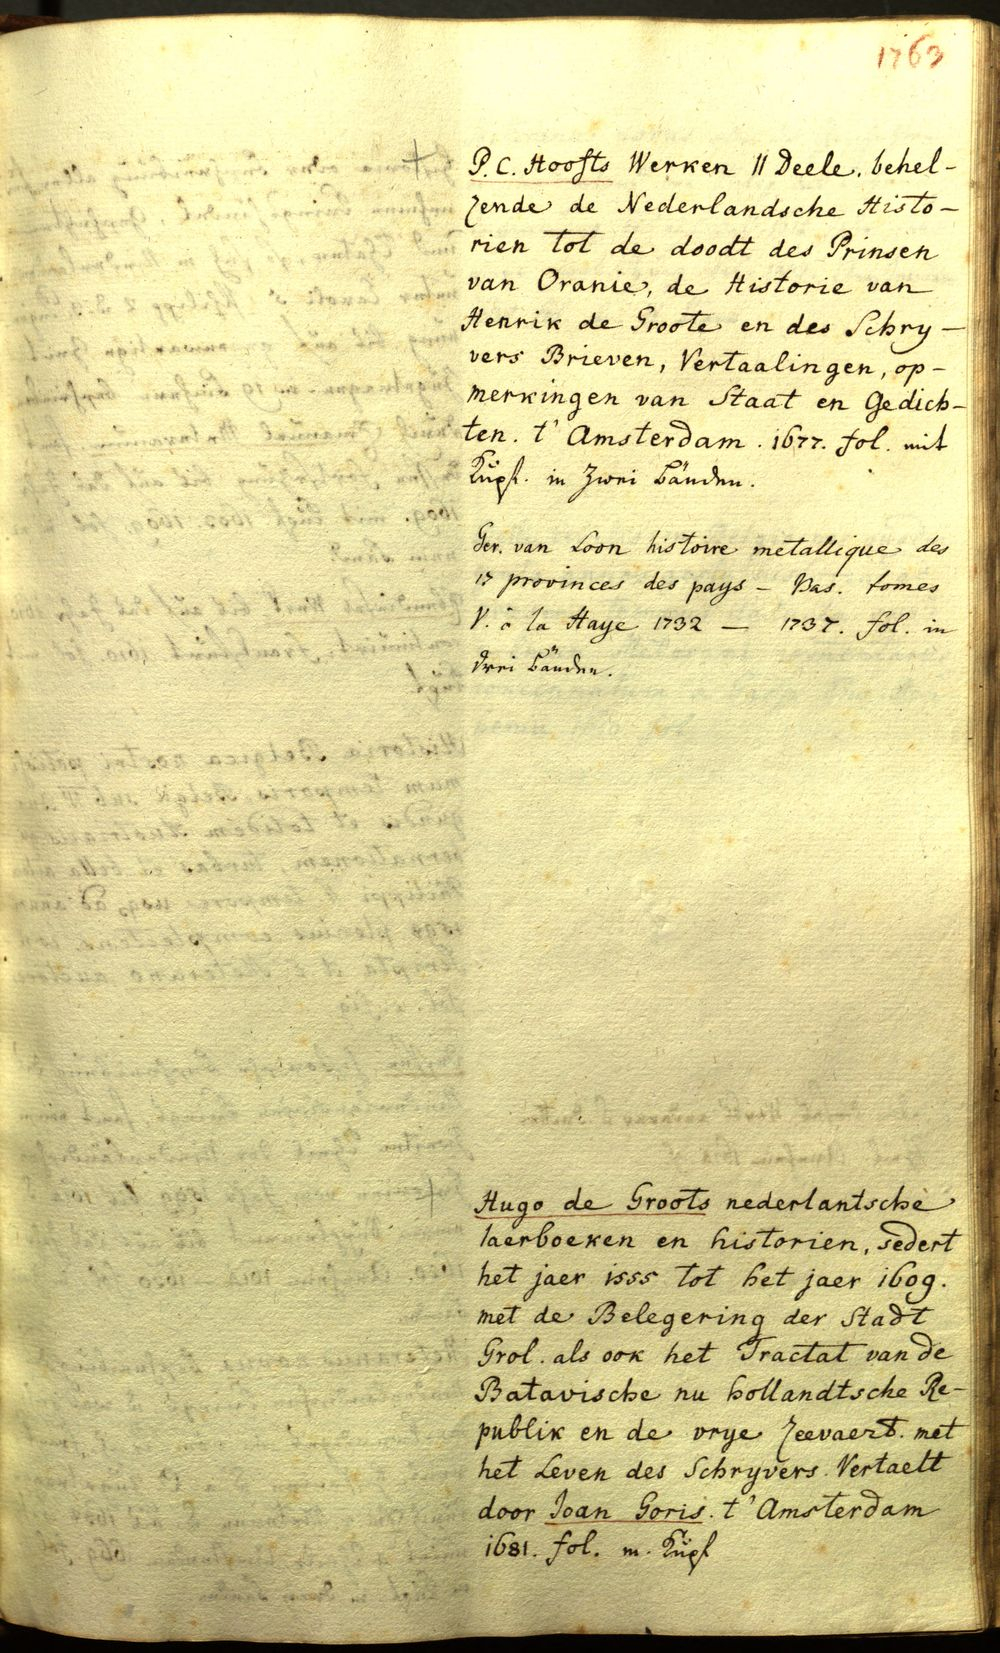 1763
P. C. Hoofts Werken II Deele. behel-
zende de Nederlandsche Histo-
rien tot de doodt des Prinsen
van Oranie, de Historie van
Henrik de Groote en des Schry-
vers Brieven, Vertaalingen, op-
merkingen van Staat en Gedich-
ten. t' Amsterdam. 1677. fol. mit
Kupf. in Zwei Bänden.
Ger. van Loon histoire metallique des
17 provinces des pays - Bas. tomes
V. à la Haye 1732 — 1737. fol. in
drei Bänden.
Hugo de Groots nederlantsche
laerboeken en historien, sedert
het jaer 1555 tot het jaer 1609.
met de Belegering der Stadt
Grol. als ook het Tractat van de
Batavische nu hollandtsche Re-
publik en de vrye Zeevaert. met
het Leven des Schryvers. Vertaelt
door Joan Goris. t' Amsterdam
1681. fol. m. Kupf